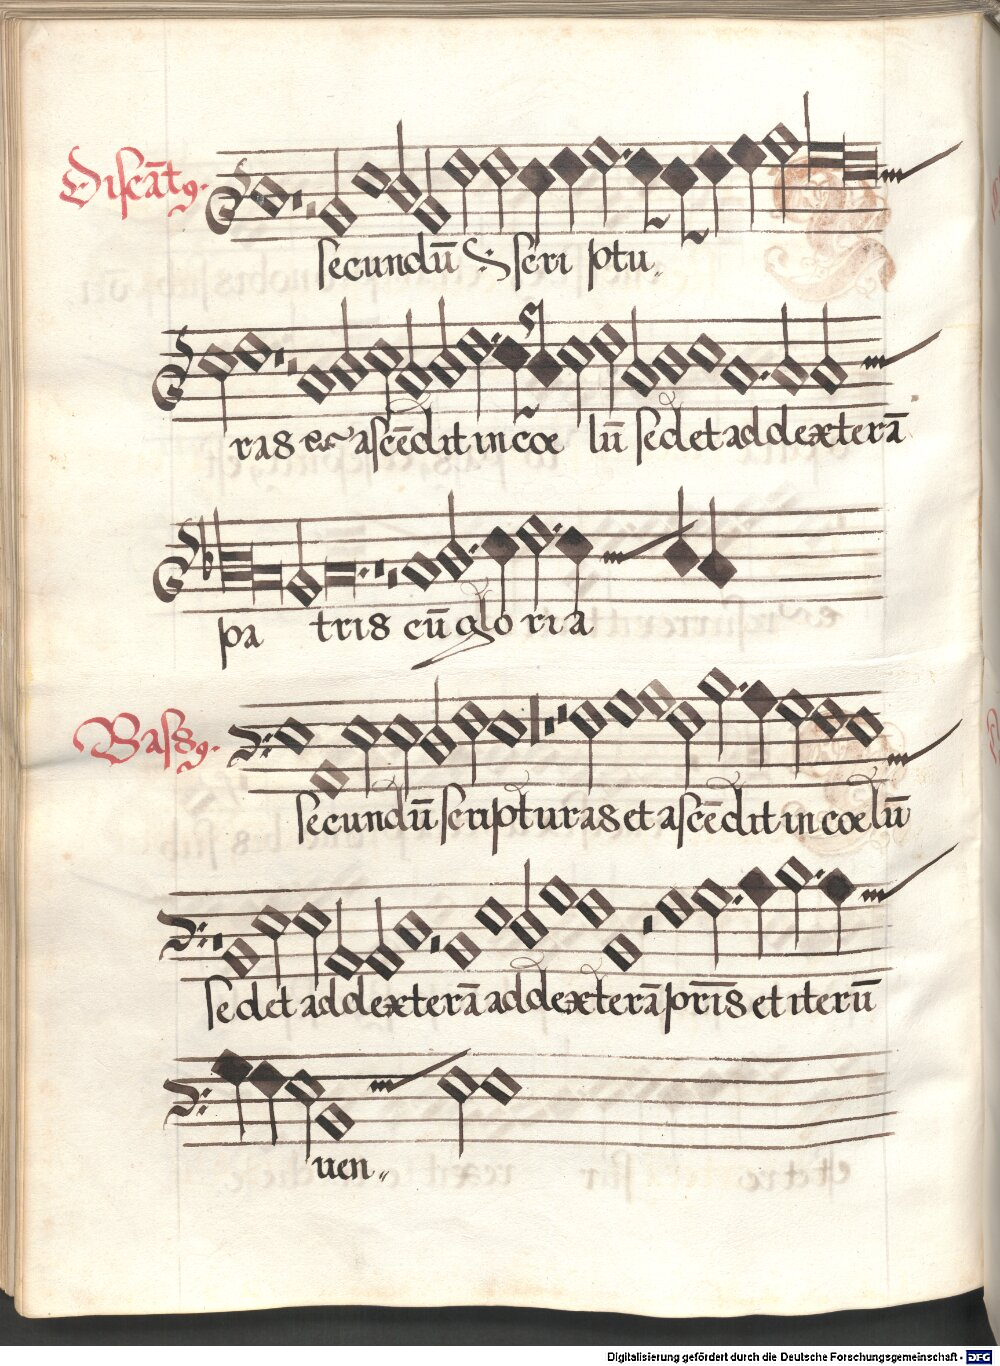 Discāt9.
secundū scri ptu
ras et ascēdit in coe lū sedet ad dexterā
pa tris cū glo ri a
Bass9.
secundū scripturas et ascēdit in coelū
sedet ad dexterā ad dexterā pr̄is et iterū
uen
Digitalisierung gefördert durch die Deutsche Forschungsgemeinschaft - DFG